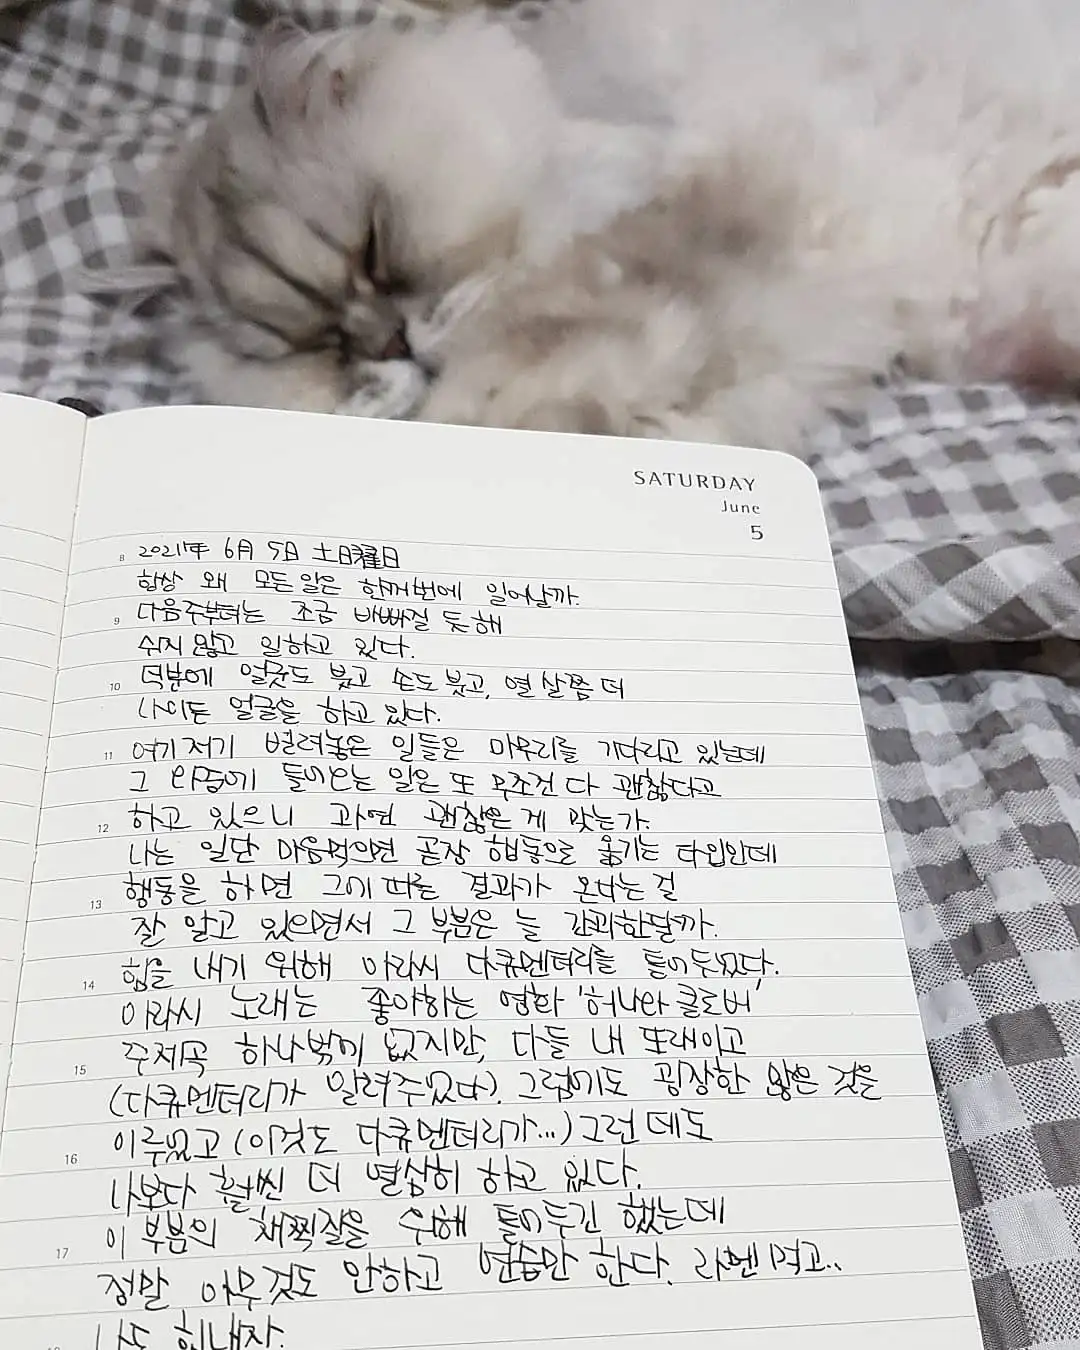 SATURDAY
June
5
8 2021年 6月 5日 土曜日
항상 왜 모든 일은 한꺼번에 일어날까.
9 다음주부터는 조금 바빠질 듯해
쉬지 않고 일하고 있다.
10 덕분에 얼굴도 붓고 손도 붓고, 열 살쯤 더
나이든 얼굴을 하고 있다.
11 여기저기 벌려놓은 일들은 마무리를 기다리고 있는데
그 와중에 들어오는 일은 또 무조건 다 괜찮다고
12 하고 있으니 과연 괜찮은 게 맞는가.
나는 일단 마음먹으면 곧장 행동으로 옮기는 타입인데
13 행동을 하면 그에 따른 결과가 온다는 걸
잘 알고 있으면서 그 부분은 늘 간과한달까.
14 힘을 내기 위해 아라시 다큐멘터리를 틀어두었다.
아라시 노래는 좋아하는 영화 '허니와 클로버'
15 주제곡 하나밖에 없지만, 다들 내 또래이고
(다큐멘터리가 알려주었다). 그럼에도 굉장한 많은 것을
16 이루었고 (이것도 다큐멘터리가...) 그런데도
나보다 훨씬 더 열심히 하고 있다.
17 이 부분의 채찍질을 위해 틀어두긴 했는데
정말 아무것도 안하고 연습만 한다. 라멘 먹고..
나도 힘내자.